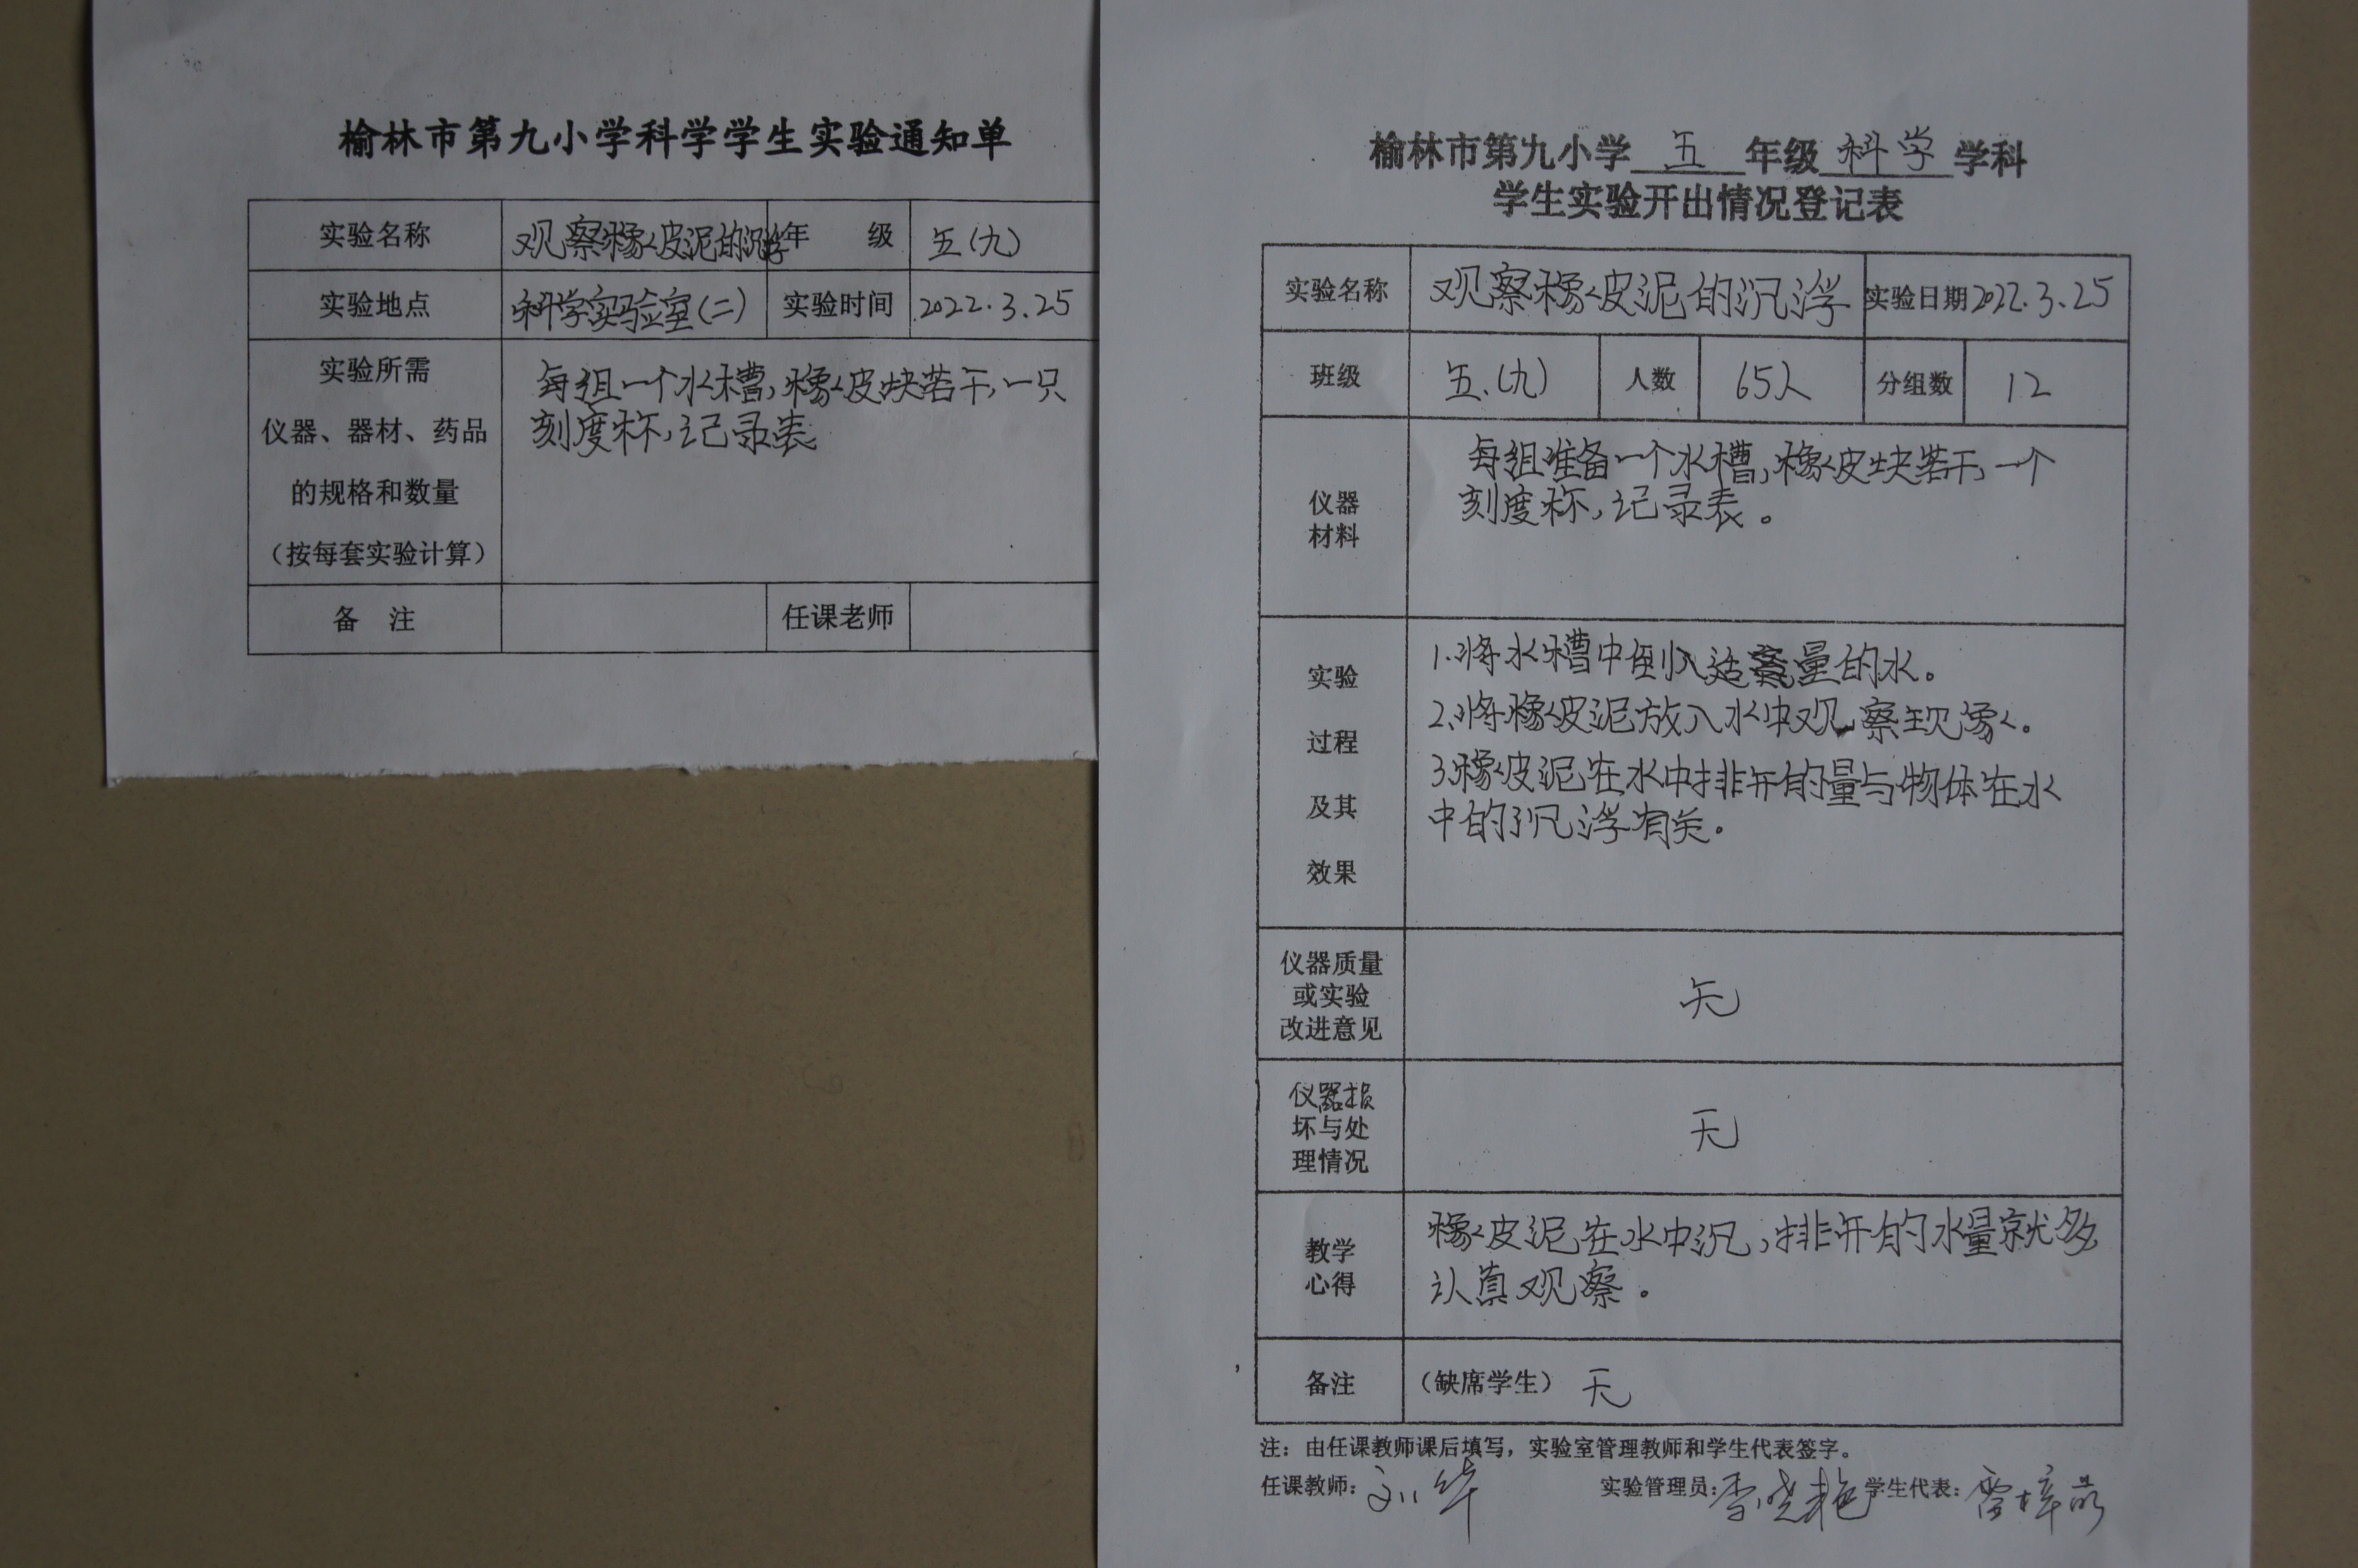 榆林市第九小学科学学生实验通知单
实验名称 观察橡皮泥的沉浮 年 级 五(九)
实验地点 科学实验室(二) 实验时间 2022.3.25
实验所需
仪器、器材、药品
的规格和数量
(按每套实验计算)
每组一个水槽,橡皮块若干,一只
刻度称,记录表
备 注 任课老师
榆林市第九小学 五 年级 科学 学科
学生实验开出情况登记表
实验名称 观察橡皮泥的沉浮 实验日期 2022.3.25
班级 五.(九) 人数 65人 分组数 12
仪器
材料
每组准备一个水槽,橡皮块若干,一个
刻度称,记录表。
实验
过程
及其
效果
1.将水槽中倒入适量的水。
2.将橡皮泥放入水中观察现像。
3.橡皮泥在水中排开的量与物体在水
中的沉浮有关。
仪器质量
或实验
改进意见
无
仪器损
坏与处
理情况
无
教学
心得
橡皮泥在水中沉,排开的水量就多
认真观察。
备注 (缺席学生) 无
注:由任课教师课后填写,实验室管理教师和学生代表签字。
任课教师:刘华 实验管理员:李晓艳 学生代表:雷梓